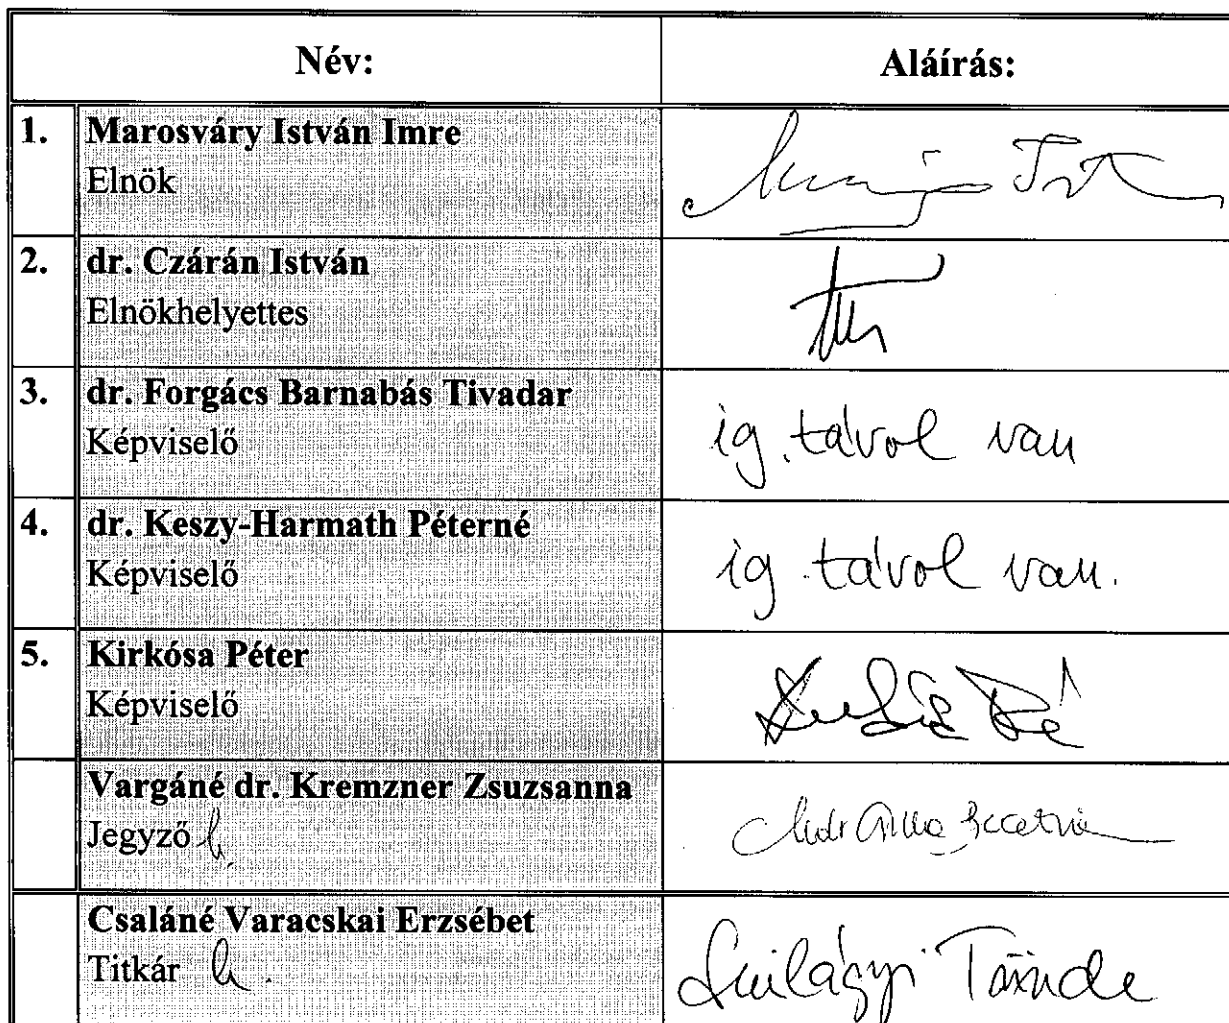 Név: Aláírás:
1. Marosváry István Imre
Elnök
2. dr. Czárán István
Elnökhelyettes
3. dr. Forgács Barnabás Tivadar
Képviselő
ig. távol van
4. dr. Keszy-Harmath Péterné
Képviselő
ig. távol van.
5. Kirkósa Péter
Képviselő
Vargáné dr. Kremzner Zsuzsanna
Jegyző h.
Csaláné Varacskai Erzsébet
Titkár h.
Szilágyi Tünde